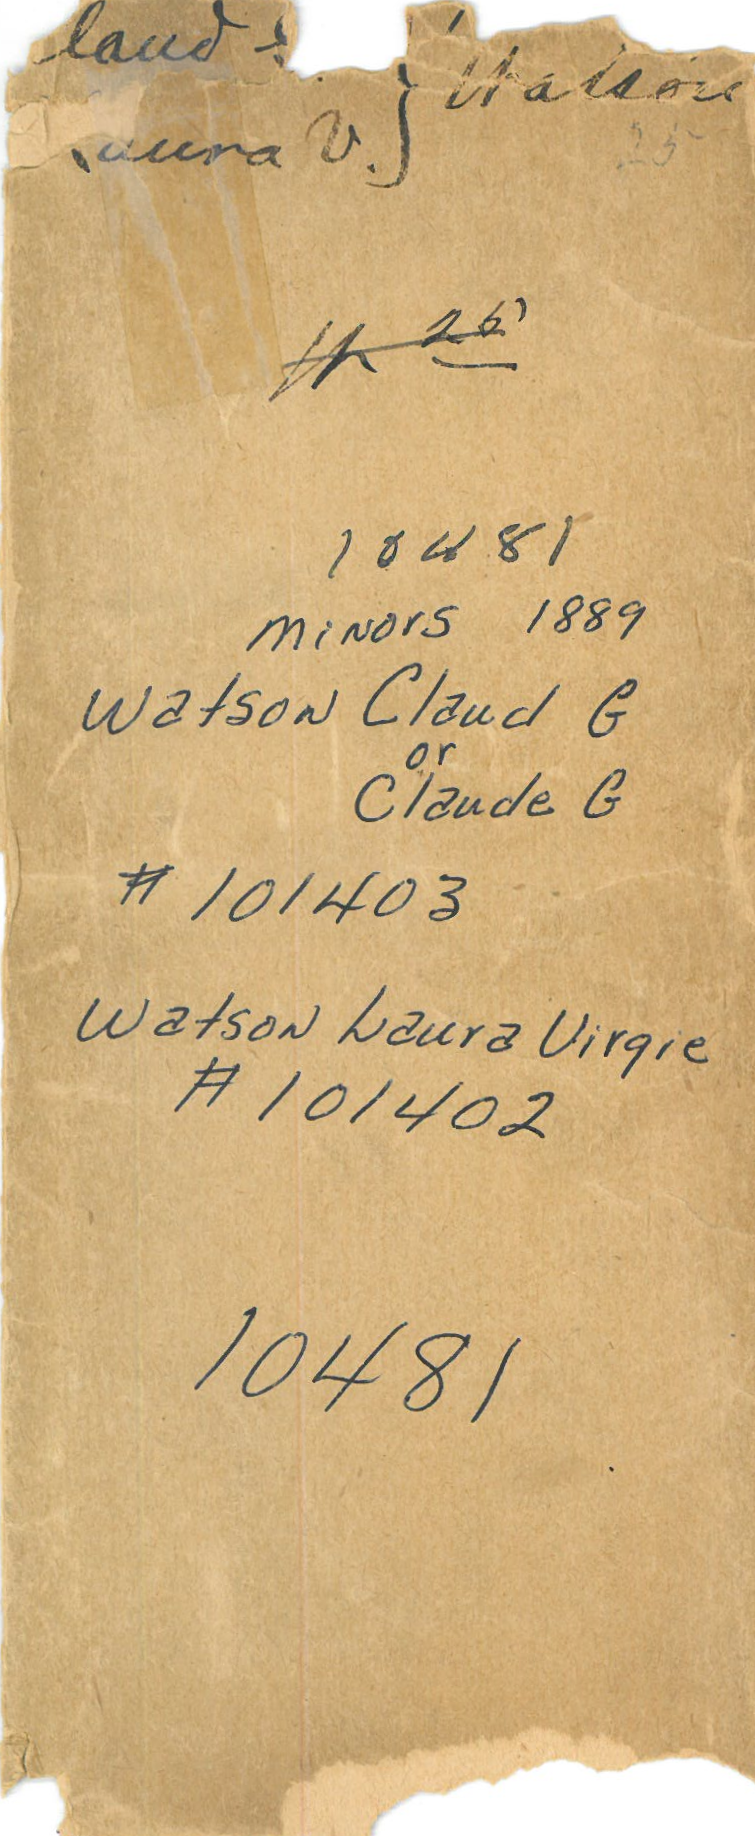 laud &
} Watson
aura V.
25
25
10481
Minors 1889
Watson Claud G
or
Claude G
# 101403
Watson Laura Virgie
# 101402
10481